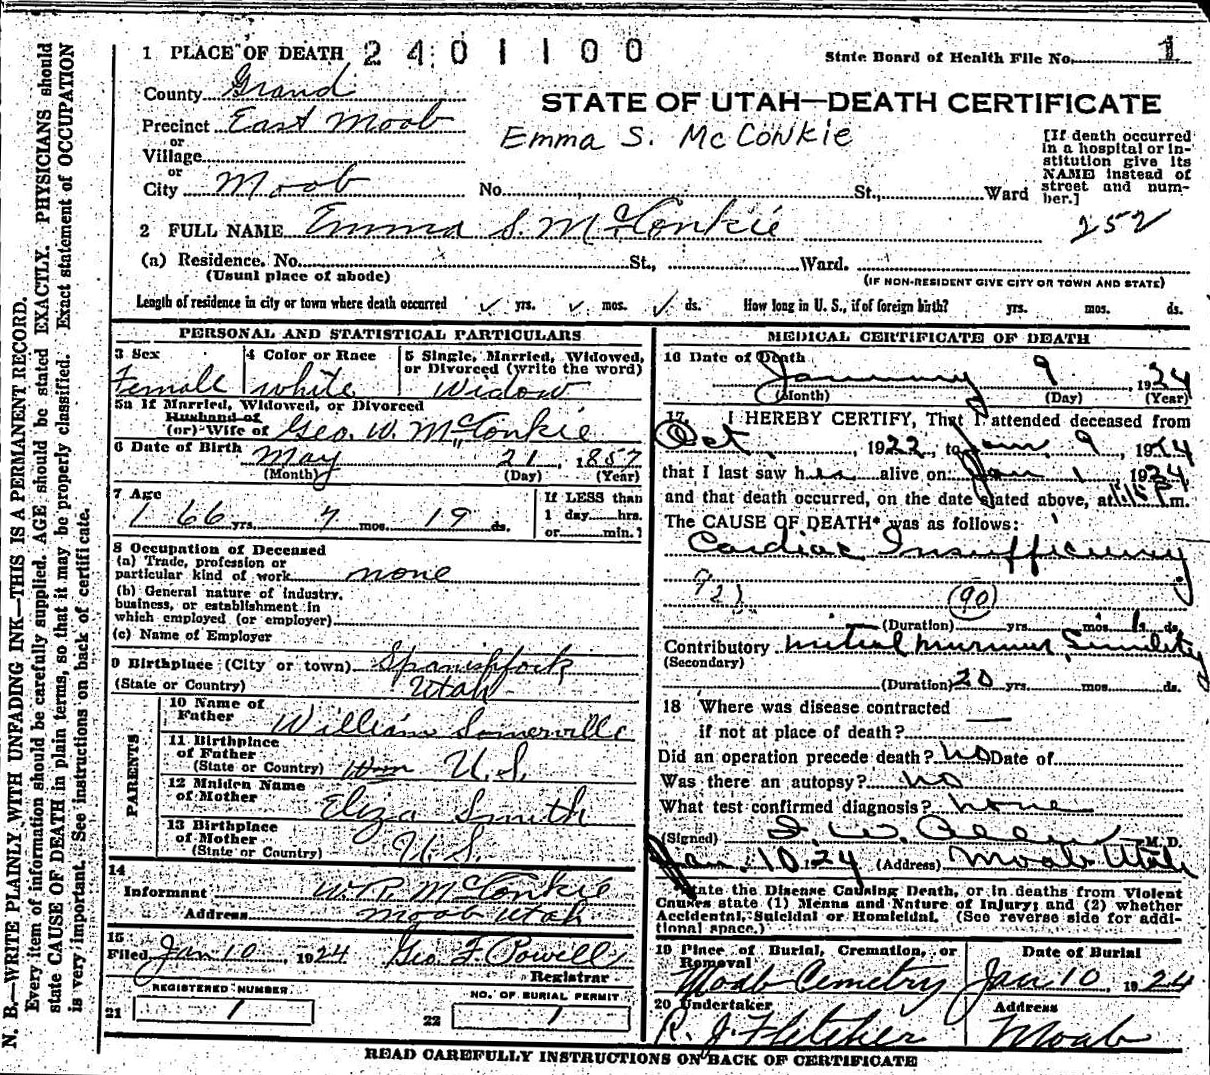 1 PLACE OF DEATH 2401100 State Board of Health File No. 1
County Grand
STATE OF UTAH—DEATH CERTIFICATE
Precinct East Moab
Emma S. McConkie
or
Village
or
City Moab No. St., Ward
[If death occurred
in a hospital or in-
stitution give its
NAME instead of
street and num-
ber.]
252
2 FULL NAME Emma S. McConkie
(a) Residence. No. St., Ward.
(Usual place of abode) (IF NON-RESIDENT GIVE CITY OR TOWN AND STATE)
Length of residence in city or town where death occurred ✓ yrs. ✓ mos. ✓ ds. How long in U. S., if of foreign birth? yrs. mos. ds.
PERSONAL AND STATISTICAL PARTICULARS
3 Sex 4 Color or Race 5 Single, Married, Widowed,
or Divorced (write the word)
Female white Widow
5a If Married, Widowed, or Divorced
Husband of
(or) Wife of Geo. W. McConkie
6 Date of Birth May 21, 1857
(Month) (Day) (Year)
7 Age If LESS than
1 day hrs.
or min.?
66 yrs. 7 mos. 19 ds.
8 Occupation of Deceased
(a) Trade, profession or
particular kind of work none
(b) General nature of industry,
business, or establishment in
which employed (or employer)
(c) Name of Employer
9 Birthplace (City or town) Spanishfork
(State or Country) Utah
PARENTS
10 Name of
Father William Somerville
11 Birthplace
of Father
(State or Country) U.S.
12 Maiden Name
of Mother Eliza Smith
13 Birthplace
of Mother
(State or Country) U.S.
14
Informant W.R. McConkie
Address Moab Utah
15
Filed Jan 10, 1924 Geo. F. Powell
Registrar
REGISTERED NUMBER NO. OF BURIAL PERMIT
21 1 22 1
MEDICAL CERTIFICATE OF DEATH
16 Date of Death
January 9, 1924
(Month) (Day) (Year)
17 I HEREBY CERTIFY, That I attended deceased from
Oct, 1922, to Jan. 9, 1924
that I last saw her alive on Jan 1 1924
and that death occurred, on the date stated above, at m.
The CAUSE OF DEATH* was as follows:
Cardiac Insufficiency
(90)
(Duration) yrs. mos. ds.
Contributory Mitral murmur, Senility
(Secondary)
(Duration) 20 yrs. mos. ds.
18 Where was disease contracted
if not at place of death?
Did an operation precede death? no Date of
Was there an autopsy? no
What test confirmed diagnosis? none
(Signed) I. W. Allen M. D.
Jan. 10. 24 (Address) Moab Utah
*State the Disease Causing Death, or in deaths from Violent
Causes state (1) Means and Nature of Injury; and (2) whether
Accidental, Suicidal or Homicidal. (See reverse side for addi-
tional space.)
19 Place of Burial, Cremation, or Date of Burial
Removal
Moab Cemetery Jan. 10, 1924
20 Undertaker Address
R. J. Fletcher Moab
READ CAREFULLY INSTRUCTIONS ON BACK OF CERTIFICATE
N. B.—WRITE PLAINLY WITH UNFADING INK—THIS IS A PERMANENT RECORD.
Every item of information should be carefully supplied. AGE should be stated EXACTLY. PHYSICIANS should
state CAUSE OF DEATH in plain terms, so that it may be properly classified. Exact statement of OCCUPATION
is very important. See instructions on back of certificate.